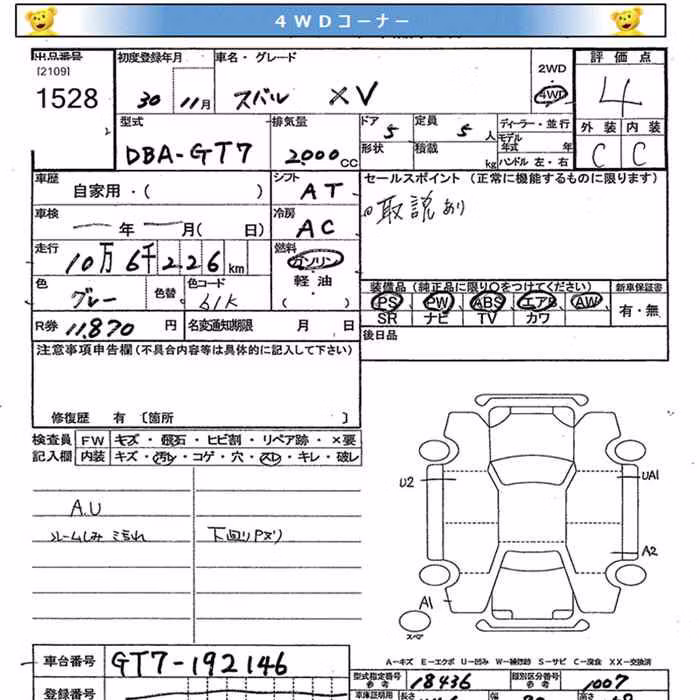 4WDコーナー
出品番号
[2109]
1528
初度登録年月
30 11月
車名・グレード
スバル XV
2WD
4WD
評価点
4
外装 内装
C C
型式
DBA-GT7
排気量
2000cc
ドア 5
定員 5人
形状
積載 kg
ディーラー・並行
モデル年式 年
ハンドル 左・右
車歴
自家用・( )
シフト
AT
セールスポイント (正常に機能するものに限ります)
取説あり
車検
年 月( 日)
冷房
AC
走行
10万6千226km
燃料
ガソリン
軽油
( )
色
グレー
色替
色コード
61K
装備品(純正品に限り〇をつけてください)
PS PW ABS エアB AW
SR ナビ TV カワ
新車保証書
有・無
R券 11,870円
名変通知期限 月 日
後日品
注意事項申告欄(不具合内容等は具体的に記入して下さい)
修復歴 有 〔箇所 〕
検査員記入欄
FW キズ・飛石・ヒビ割・リペア跡・×要
内装 キズ・汚レ・コゲ・穴・スレ・キレ・破レ
A.U
下回りPヌリ
U2
UA1
A2
A1
スペア
A-キズ E-エクボ U-凹み W-補修跡 S-サビ C-腐食 XX-交換済
車台番号 GT7-192146
型式指定番号 参考 18436
類別区分番号 参考 1007
登録番号
車庫証明用
長さ
幅
高さ